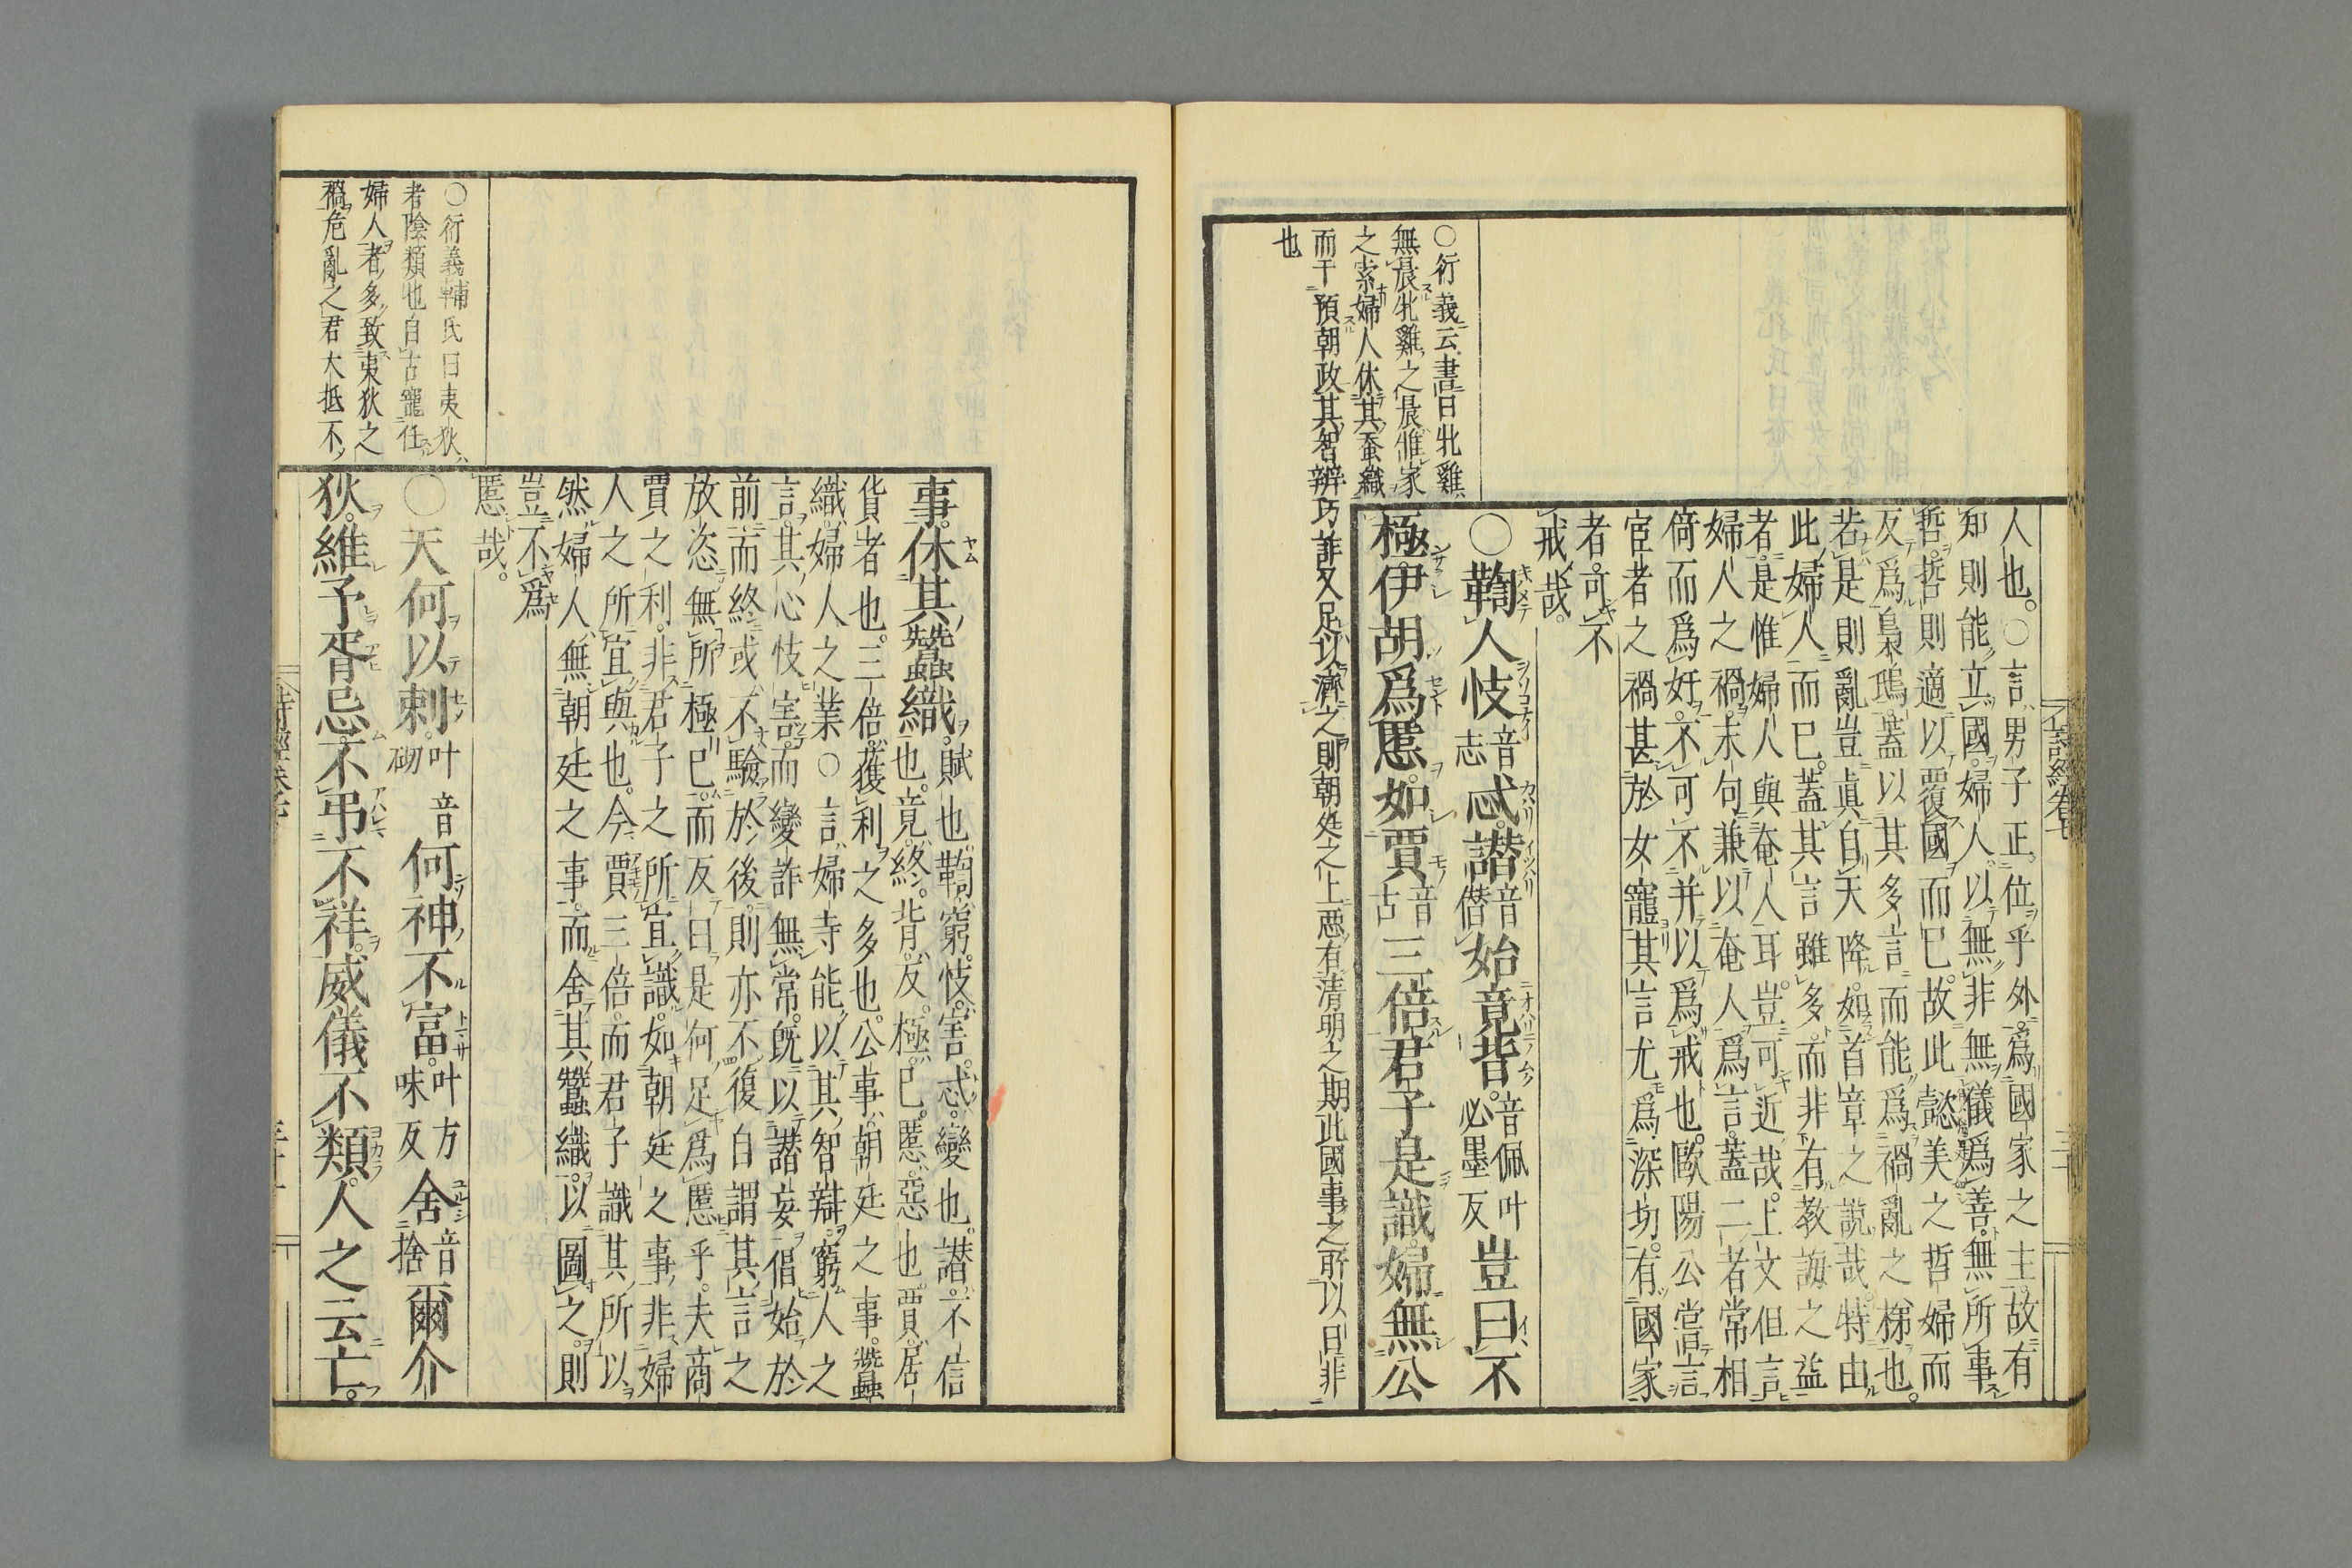 人也。○言男子正位乎外。爲國家之主。故有
知則能立國。婦人以無非無儀爲善。無所事
哲。哲則適以覆國而已。故此懿美之哲婦而
反爲梟鴟。蓋以其多言而能爲禍亂之梯也。
若是則亂豈眞自天降。如首章之說哉。特由
此婦人而已。蓋其言雖多。而非有教誨之益
者。是惟婦人與奄人耳。豈可近哉。上文但言
婦人之禍。末句兼以奄人爲言。蓋二者常相
倚而爲奸。不可不并以爲戒也。歐陽公嘗言
宦者之禍甚於女寵。其言尤爲深切。有國家
者。可不
戒哉。
○鞫人忮音志忒。譖音僭始竟背。音佩叶必墨反豈曰不
極。伊胡爲慝。如賈音古三倍。君子是識。婦無公
○衍義云書曰牝雞
無晨牝雞之晨惟家
之索婦人休其蚕織
而干預朝政其智辨巧詐又足以濟之則朝廷之上惡有清明之期此國事之所以日非
也
詩經卷七
事。休其蠶織。賦也。鞫窮。忮害。忒變也。譖不信
也。竟終。背反。極已。慝惡也。賈居
貨者也。三倍。獲利之多也。公事。朝廷之事。蠶
織婦人之業○言婦寺能以其智辯。窮人之
言。其心忮害。而變詐無常。旣以譖妄倡始於
前。而終或不驗於後。則亦不復自謂其言之
放恣無所極已。而反曰是何足爲慝乎。夫商
賈之利。非君子之所宜識。如朝廷之事。非婦
人之所宜與也。今賈三倍。而君子識其所以
然。婦人無朝廷之事。而舍其蠶織。以圖之。則
豈不爲
慝哉。
○天何以刺。叶音砌何神不富。叶方味反舍音捨爾介
狄。維予胥忌。不弔不祥。威儀不類。人之云亡。
○衍義輔氏曰夷狄
者陰類也自古寵任
婦人者多致夷狄之
禍危亂之君大抵不